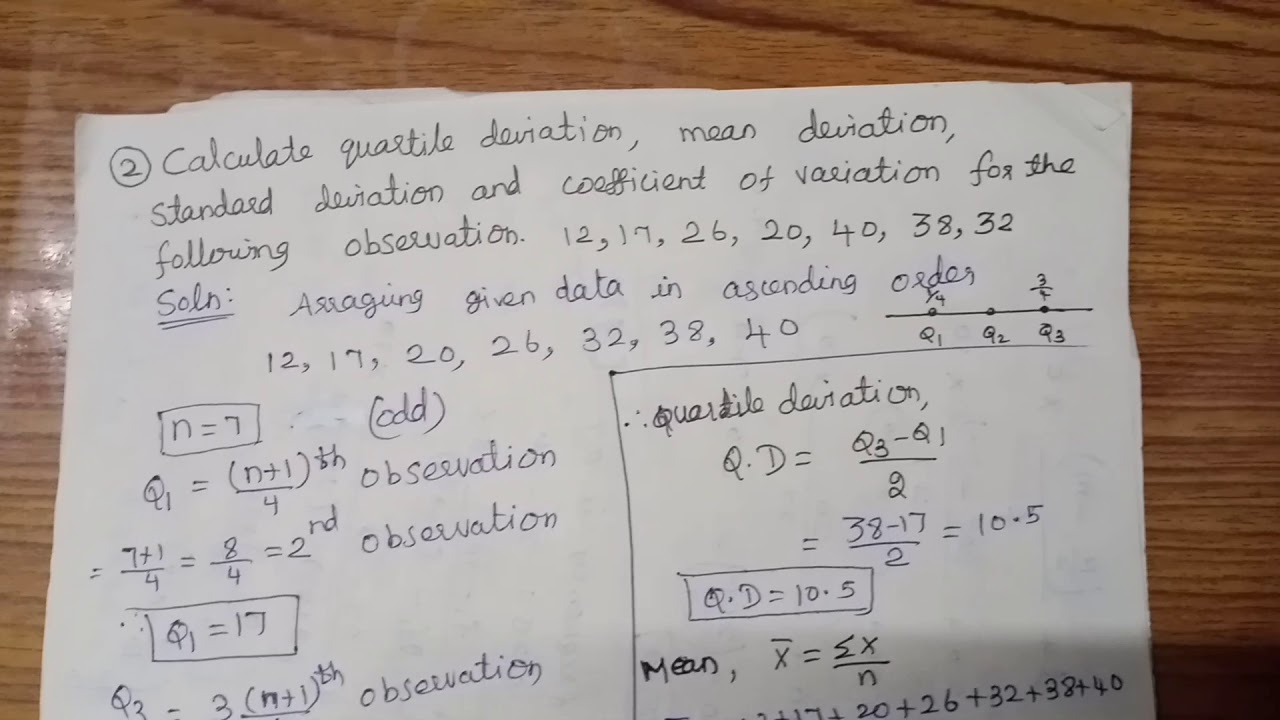 ② Calculate quartile deviation, mean deviation,
standard deviation and coefficient of variation for the
following observation. 12, 17, 26, 20, 40, 38, 32
Soln: Arraging given data in ascending order
12, 17, 20, 26, 32, 38, 40
1/4 3/4
Q1 Q2 Q3
n = 7 (odd)
Q1 = (n+1)/4 th observation
= 7+1/4 = 8/4 = 2nd observation
∴ Q1 = 17
Q3 = 3(n+1)th observation
∴ Quartile deviation,
Q.D = Q3-Q1/2
= 38-17/2 = 10.5
Q.D = 10.5
Mean, x̄ = Σx/n
+17+20+26+32+38+40